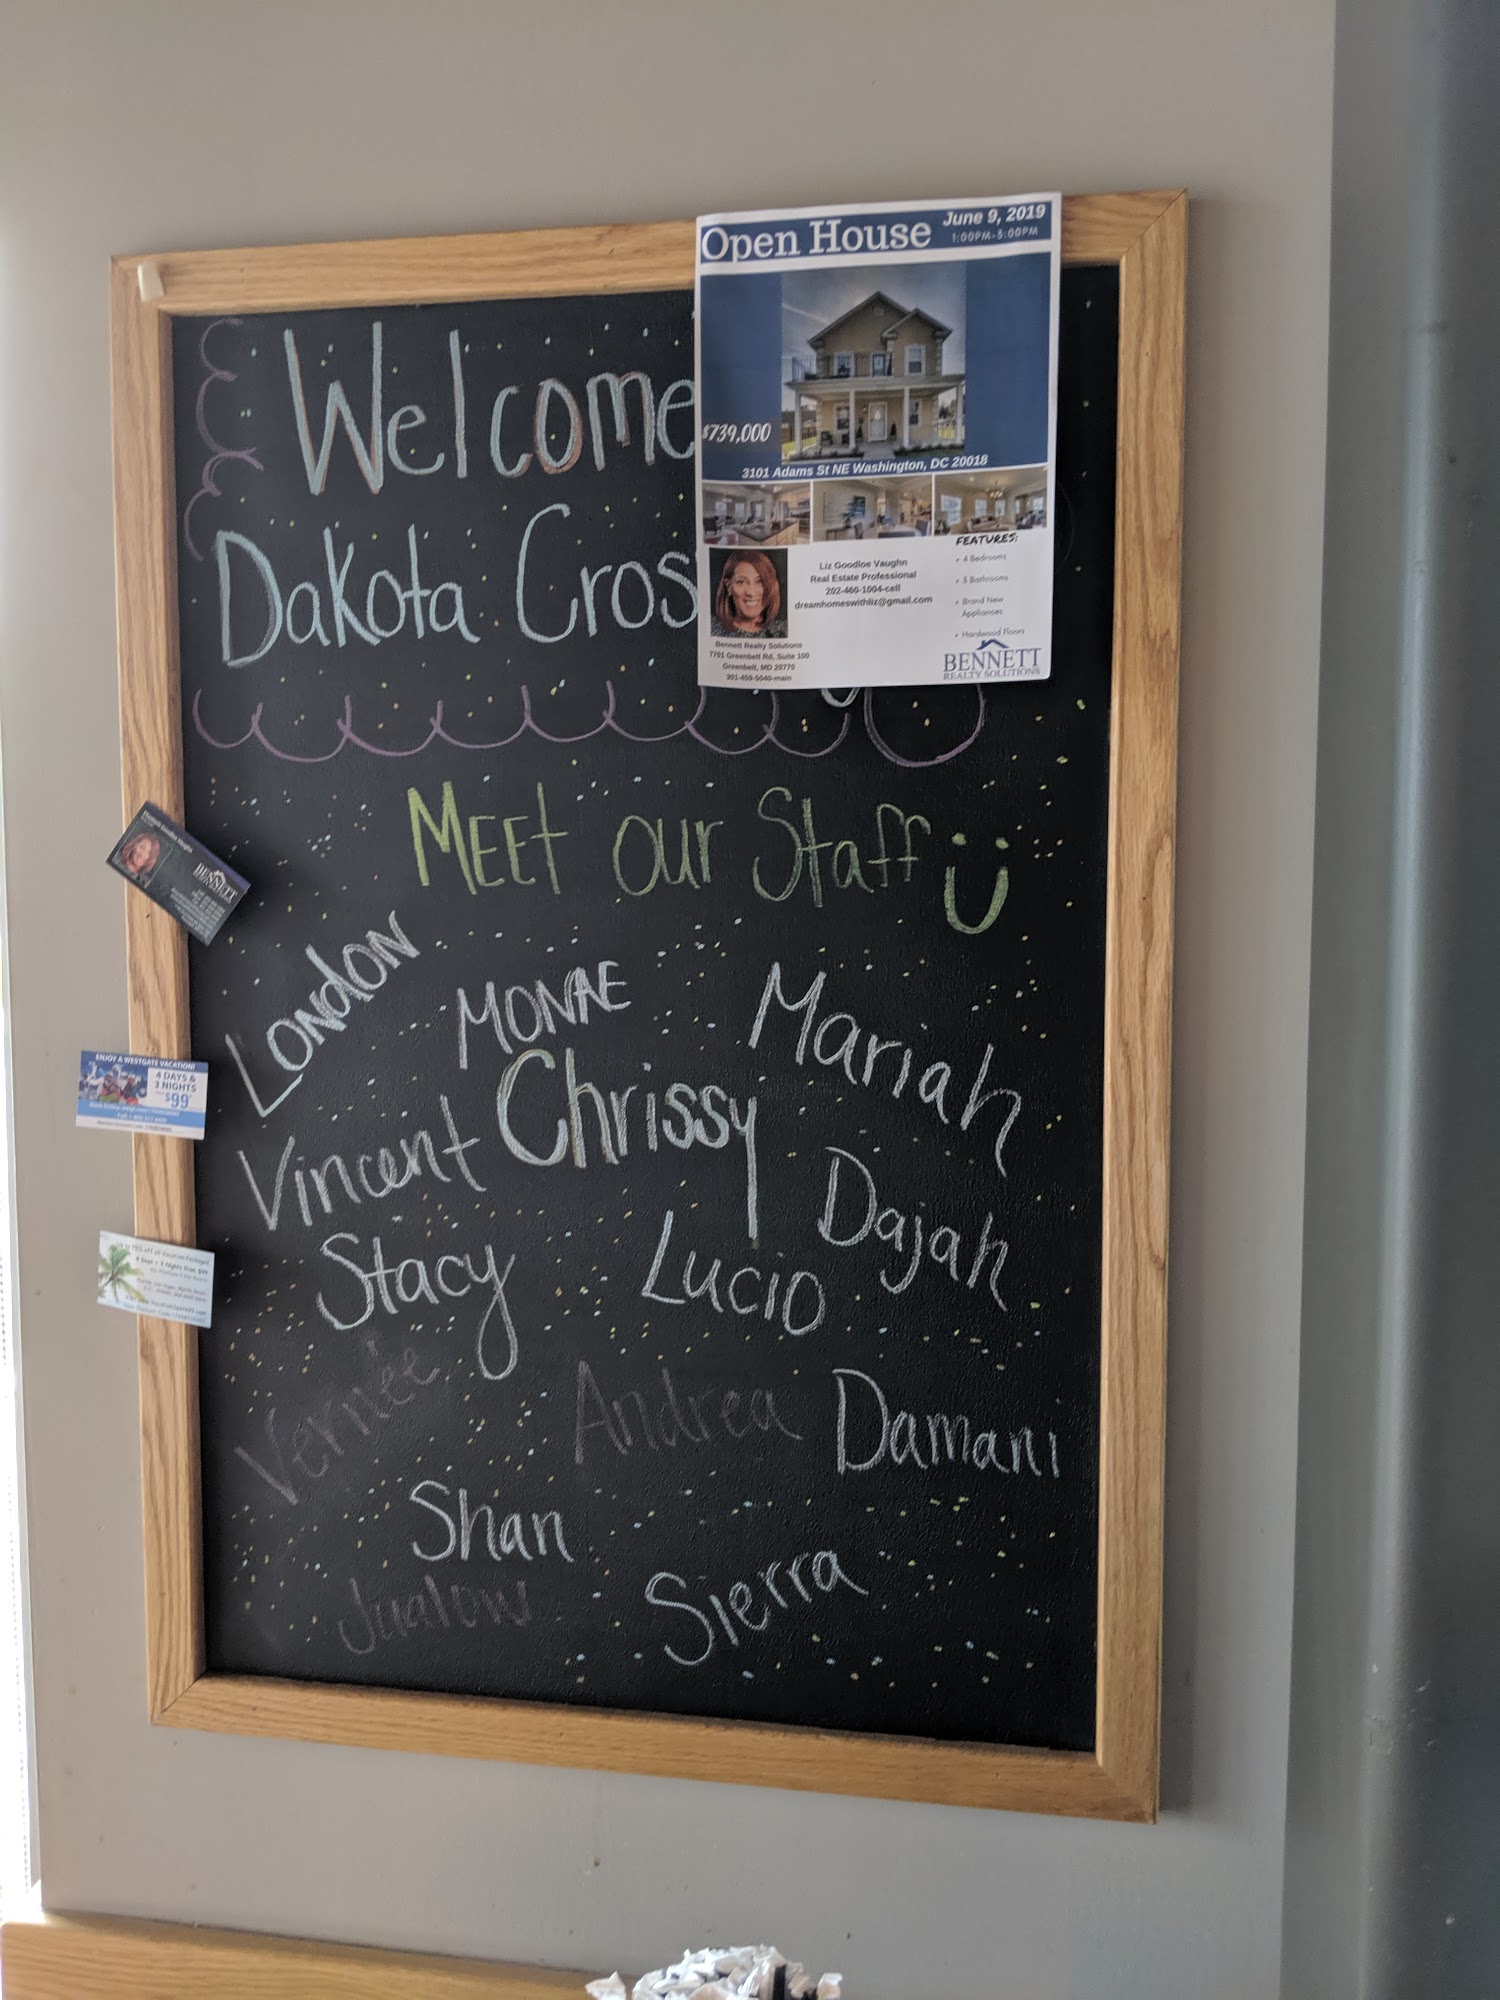 Open House
June 9, 2019
1:00PM-5:00PM
$739,000
3101 Adams St NE Washington, DC 20018
FEATURES:
• 4 Bedrooms
• 3 Bathrooms
• Brand New
Appliances
• Hardwood Floors
Liz Goodloe Vaughn
Real Estate Professional
202-460-1004-cell
dreamhomeswithliz@gmail.com
Bennett Realty Solutions
7701 Greenbelt Rd, Suite 100
Greenbelt, MD 20770
301-459-5040-main
BENNETT
REALTY SOLUTIONS
Welcome
Dakota Cros
MEEt our Staff
LondoN
MONAE
Mariah
Chrissy
Vincent
Dajah
Stacy
Lucio
Vernée
Andrea
Damani
Shan
Sierra
BENNETT
ENJOY A WESTGATE VACATION!
4 DAYS &
3 NIGHTS
$99